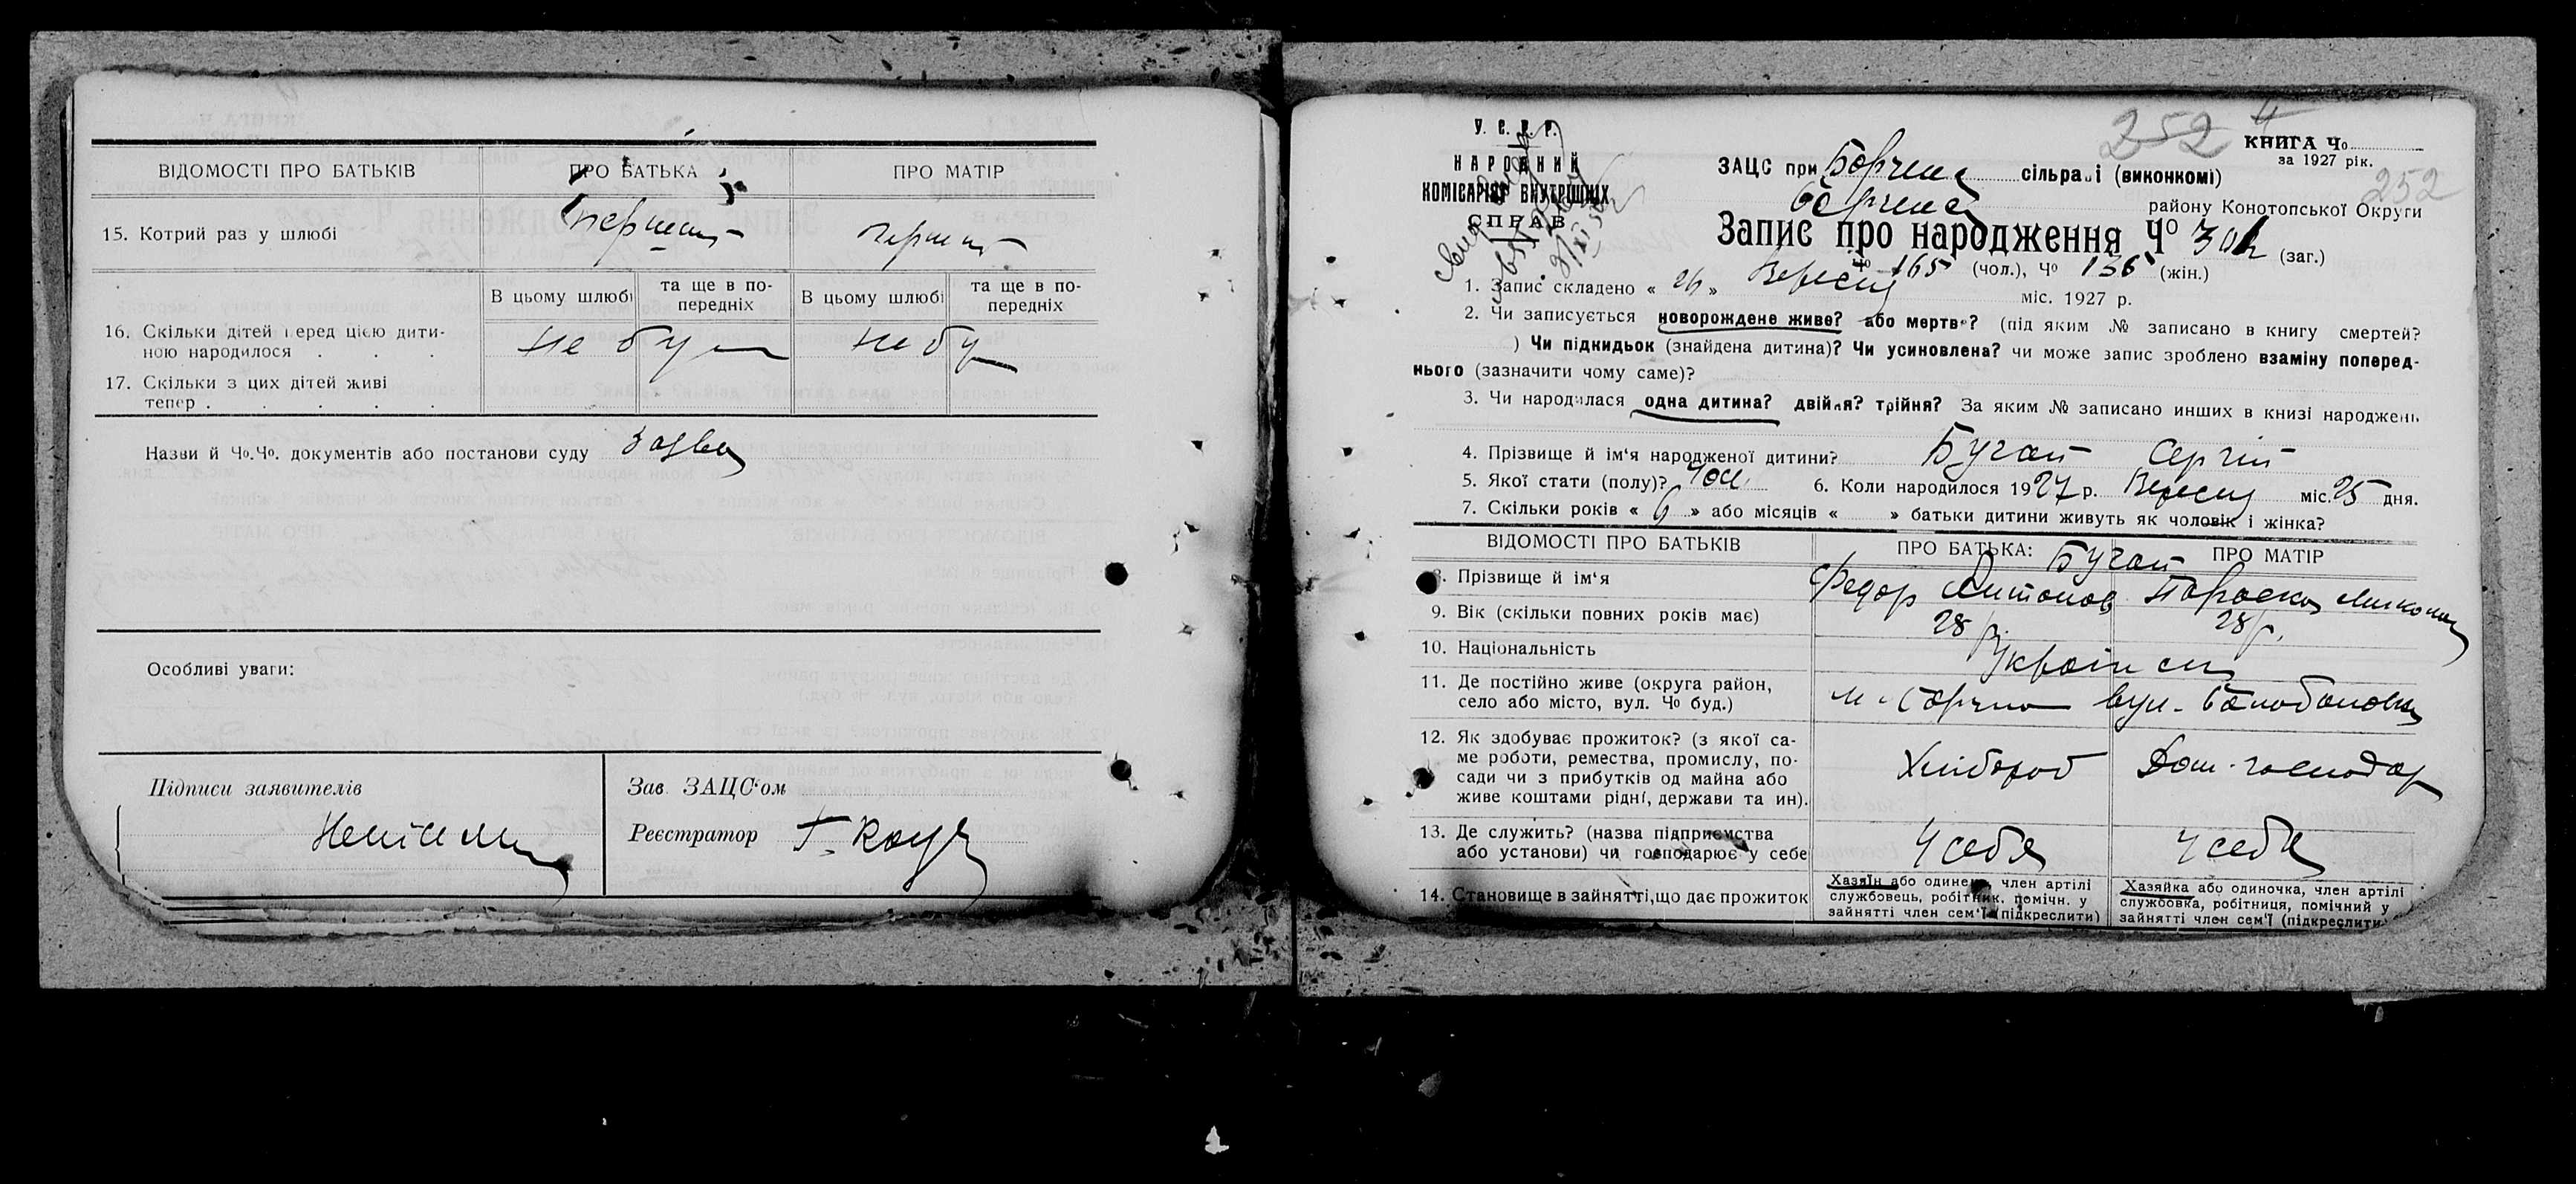 ВІДОМОСТІ ПРО БАТЬКІВ ПРО БАТЬКА ПРО МАТІР
15. Котрий раз у шлюбі
В цьому шлюбі та ще в попередніх В цьому шлюбі та ще в попередніх
16. Скільки дітей перед цією дити-
ною народилося . . . не було не бу
17. Скільки з цих дітей живі
тепер . . . . .
Назви й Чо.Чо. документів або постанови суду
Особливі уваги:
Підписи заявителів
Зав. ЗАЦС'ом
Реєстратор
252
КНИГА Чо
за 1927 рік.
252
У. С. Р. Р.
НАРОДНИЙ
КОМІСАРІЯТ ВНУТРІШНІХ
СПРАВ
ЗАЦС при Борзна сільраді (виконкомі)
району Конотопської Округи
Запис про народження Чо 301 (заг.)
Чо 165 (чол.), Чо 136 (жін.)
1. Запис складено « 26 » Вересня міс. 1927 р.
2. Чи записується новорождене живе? або мертве? (під яким № записано в книгу смертей?
) Чи підкидьок (знайдена дитина)? Чи усиновлена? чи може запис зроблено взаміну поперед-
нього (зазначити чому саме)?
3. Чи народилася одна дитина? двійня? трійня? За яким № записано инших в книзі народжень
4. Прізвище й ім'я народженої дитини? Бугай Сергій
5. Якої стати (полу)? Чол. 6. Коли народилося 1927 р. Вересня міс. 25 дня.
7. Скільки років « 6 » або місяців « » батьки дитини живуть як чоловік і жінка?
ВІДОМОСТІ ПРО БАТЬКІВ ПРО БАТЬКА: ПРО МАТІР
Бугай
8. Прізвище й ім'я Федор Антонов Параска
9. Вік (скільки повних років має) 28 р. 28 р.
10. Національність Українці
11. Де постійно живе (округа район,
село або місто, вул. Чо буд.) м. Борзна вул.
12. Як здобуває прожиток? (з якої са-
ме роботи, ремества, промислу, по-
сади чи з прибутків од майна або
живе коштами рідні, держави та ин).
Хлібороб Дом. господар
13. Де служить? (назва підприємства
або установи) чи господарює у себе
У себя У себя
14. Становище в зайнятті, що дає прожиток
Хазяїн або одинець, член артілі
службовець, робітник, помічн. у
зайнятті член сем'ї (підкреслити)
Хазяйка або одиночка, член артілі
службовка, робітниця, помічний у
зайнятті член сем'ї (підкреслити